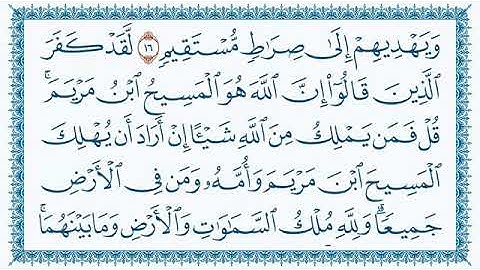 وَيَهْدِيهِمْ إِلَىٰ صِرَٰطٍ مُّسْتَقِيمٍ ١٦ لَّقَدْ كَفَرَ
ٱلَّذِينَ قَالُوٓا۟ إِنَّ ٱللَّهَ هُوَ ٱلْمَسِيحُ ٱبْنُ مَرْيَمَ ۚ
قُلْ فَمَن يَمْلِكُ مِنَ ٱللَّهِ شَيْـًٔا إِنْ أَرَادَ أَن يُهْلِكَ
ٱلْمَسِيحَ ٱبْنَ مَرْيَمَ وَأُمَّهُۥ وَمَن فِى ٱلْأَرْضِ
جَمِيعًا ۗ وَلِلَّهِ مُلْكُ ٱلسَّمَٰوَٰتِ وَٱلْأَرْضِ وَمَا بَيْنَهُمَا ۚ